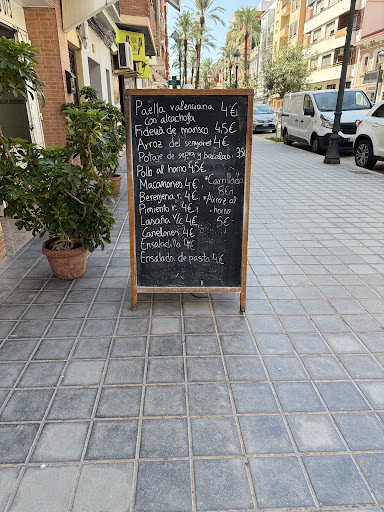 Paella valenciana 4€
con alcachofa
Fideuà de marisco 4'5€
Arroz del senyoret 4€
Potaje de sepia y bacalao 3'5€
Pollo al horno 4'5€
Macarrones 4€, *Carrillada
8€
Berenjena r. 4€, *Arroz al
Pimiento r. 4€, horno
Lasaña Y/c 4€ 5€
Canelones 4€
Ensaladilla 4€
Ensalada de pasta 4€